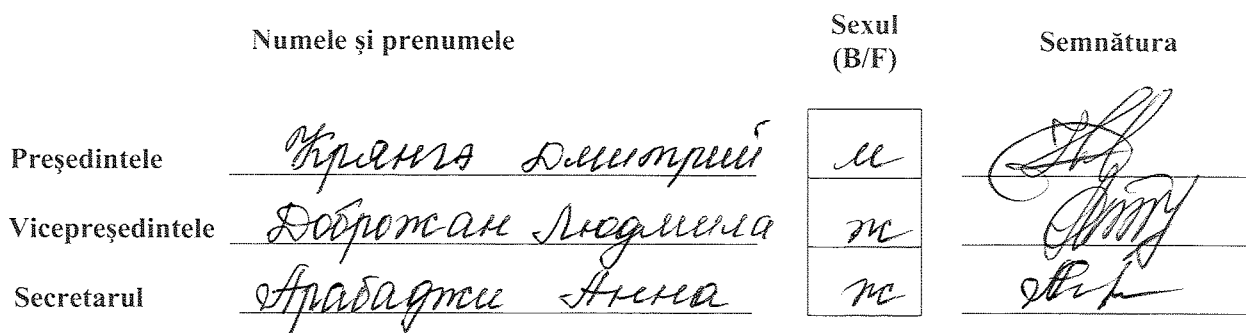 Numele și prenumele Sexul (B/F) Semnătura
Președintele Крянгэ Дмитрий м
Vicepreședintele Доброжан Людмила ж
Secretarul Арабаджи Анна ж